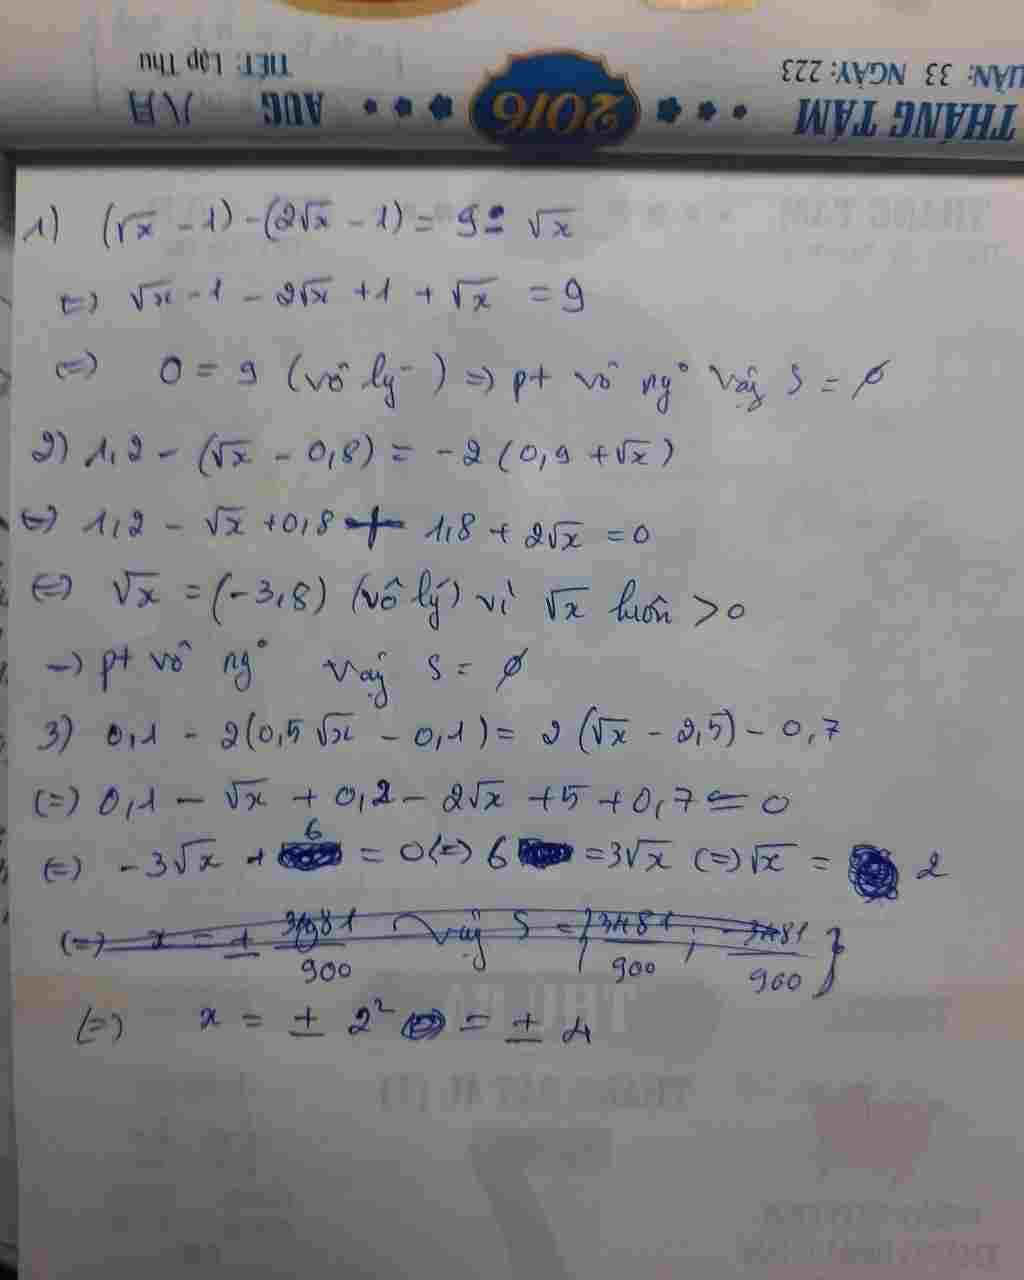 UẦN: 33 NGÀY: 223
TIẾT: Lập Thu
THÁNG TÁM
2016
AUG
1) (√x - 1) - (2√x - 1) = 9 - √x
(=) √x - 1 - 2√x + 1 + √x = 9
(=) 0 = 9 (vô lý) => pt vô ng° Vậy S = ∅
2) 1,2 - (√x - 0,8) = -2 (0,9 + √x)
(=) 1,2 - √x + 0,8 + 1,8 + 2√x = 0
(=) √x = (-3,8) (vô lý) vì √x luôn > 0
-> pt vô ng° Vậy S = ∅
3) 0,1 - 2(0,5√x - 0,1) = 2(√x - 2,5) - 0,7
(=) 0,1 - √x + 0,2 - 2√x + 5 + 0,7 = 0
(=) -3√x + 6 = 0 (=) 6 = 3√x (=) √x = 2
(=) x = ± 3481/900 Vậy S = {3481/900 ; -3481/900}
(=) x = ± 2² = ± 4